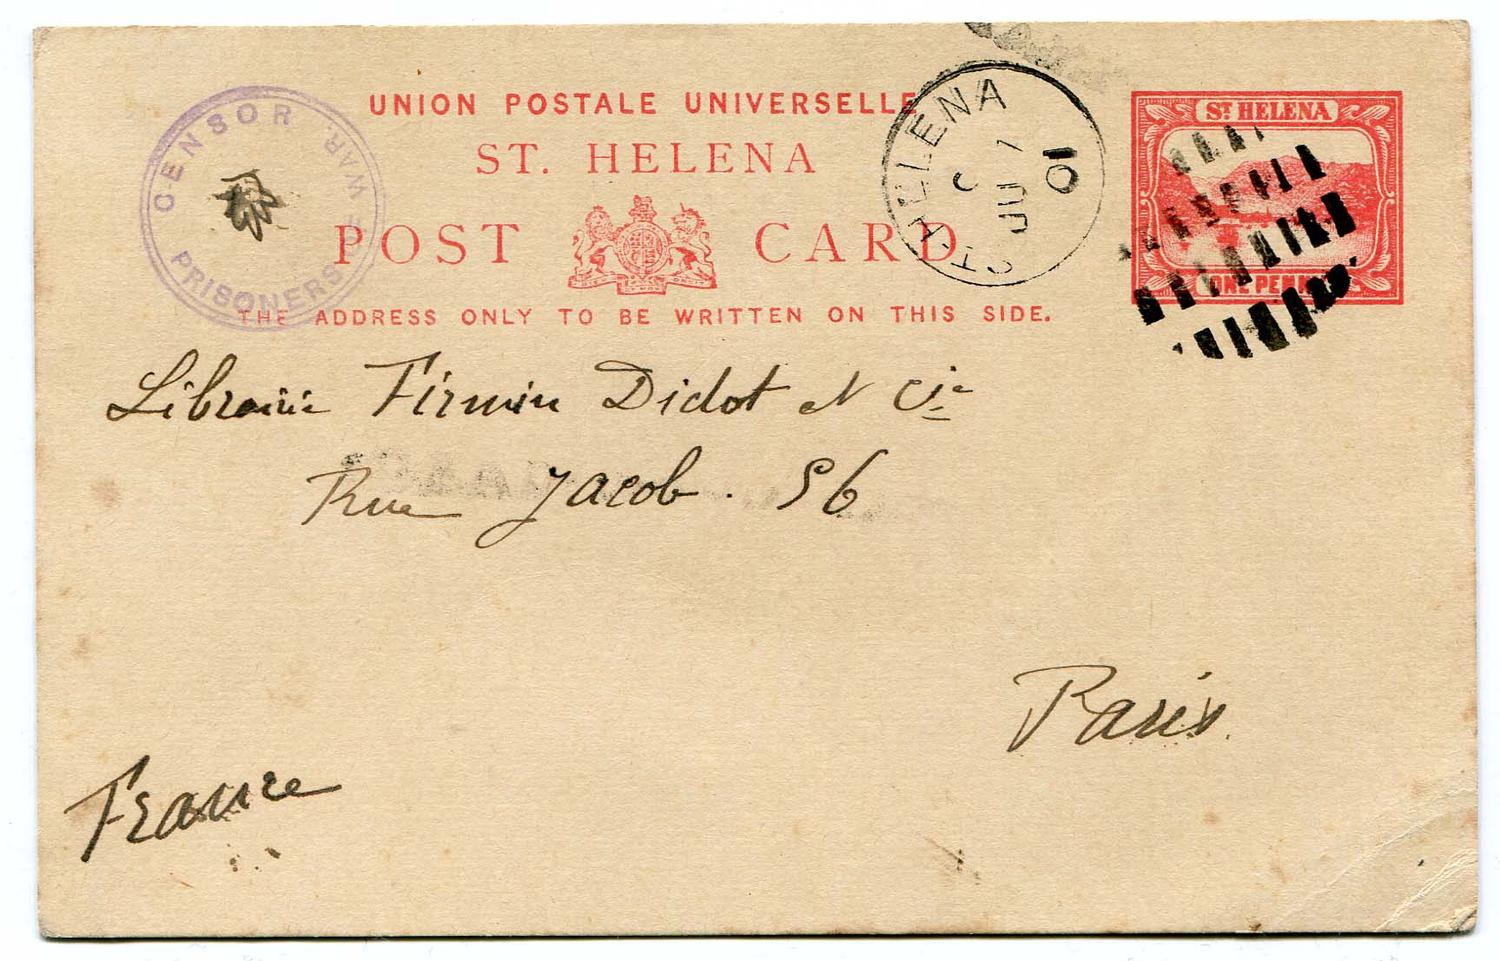 UNION POSTALE UNIVERSELLE
ST. HELENA
POST CARD
THE ADDRESS ONLY TO BE WRITTEN ON THIS SIDE.
CENSOR
PRISONERS OF WAR.
ST HELENA
C
JU 7
01
ST. HELENA
ONE PENNY
Librairie Firmin Didot et Cie
Rue Jacob. 56
Paris
France